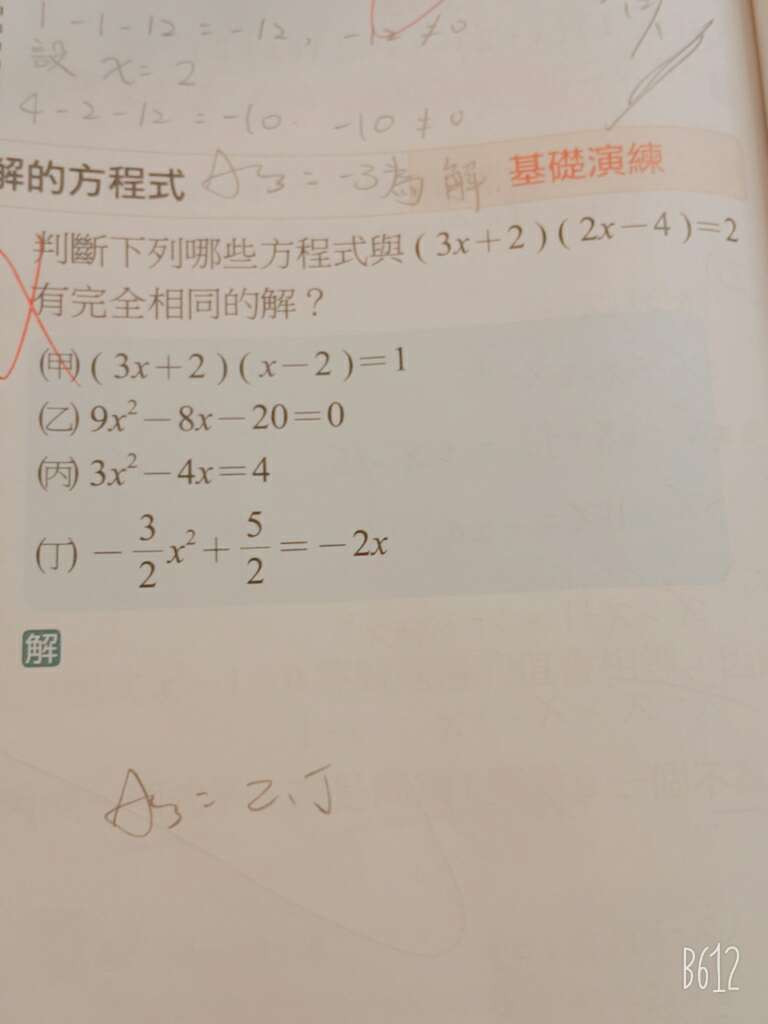 1-1-12=-12, -12≠0
設 x=2
4-2-12=-10. -10≠0
解的方程式 Ans=-3為解. 基礎演練
判斷下列哪些方程式與(3x+2)(2x-4)=2
有完全相同的解？
(甲)(3x+2)(x-2)=1
(乙)9x²-8x-20=0
(丙)3x²-4x=4
(丁)-3/2x²+5/2=-2x
解
Ans=乙、丁
B612